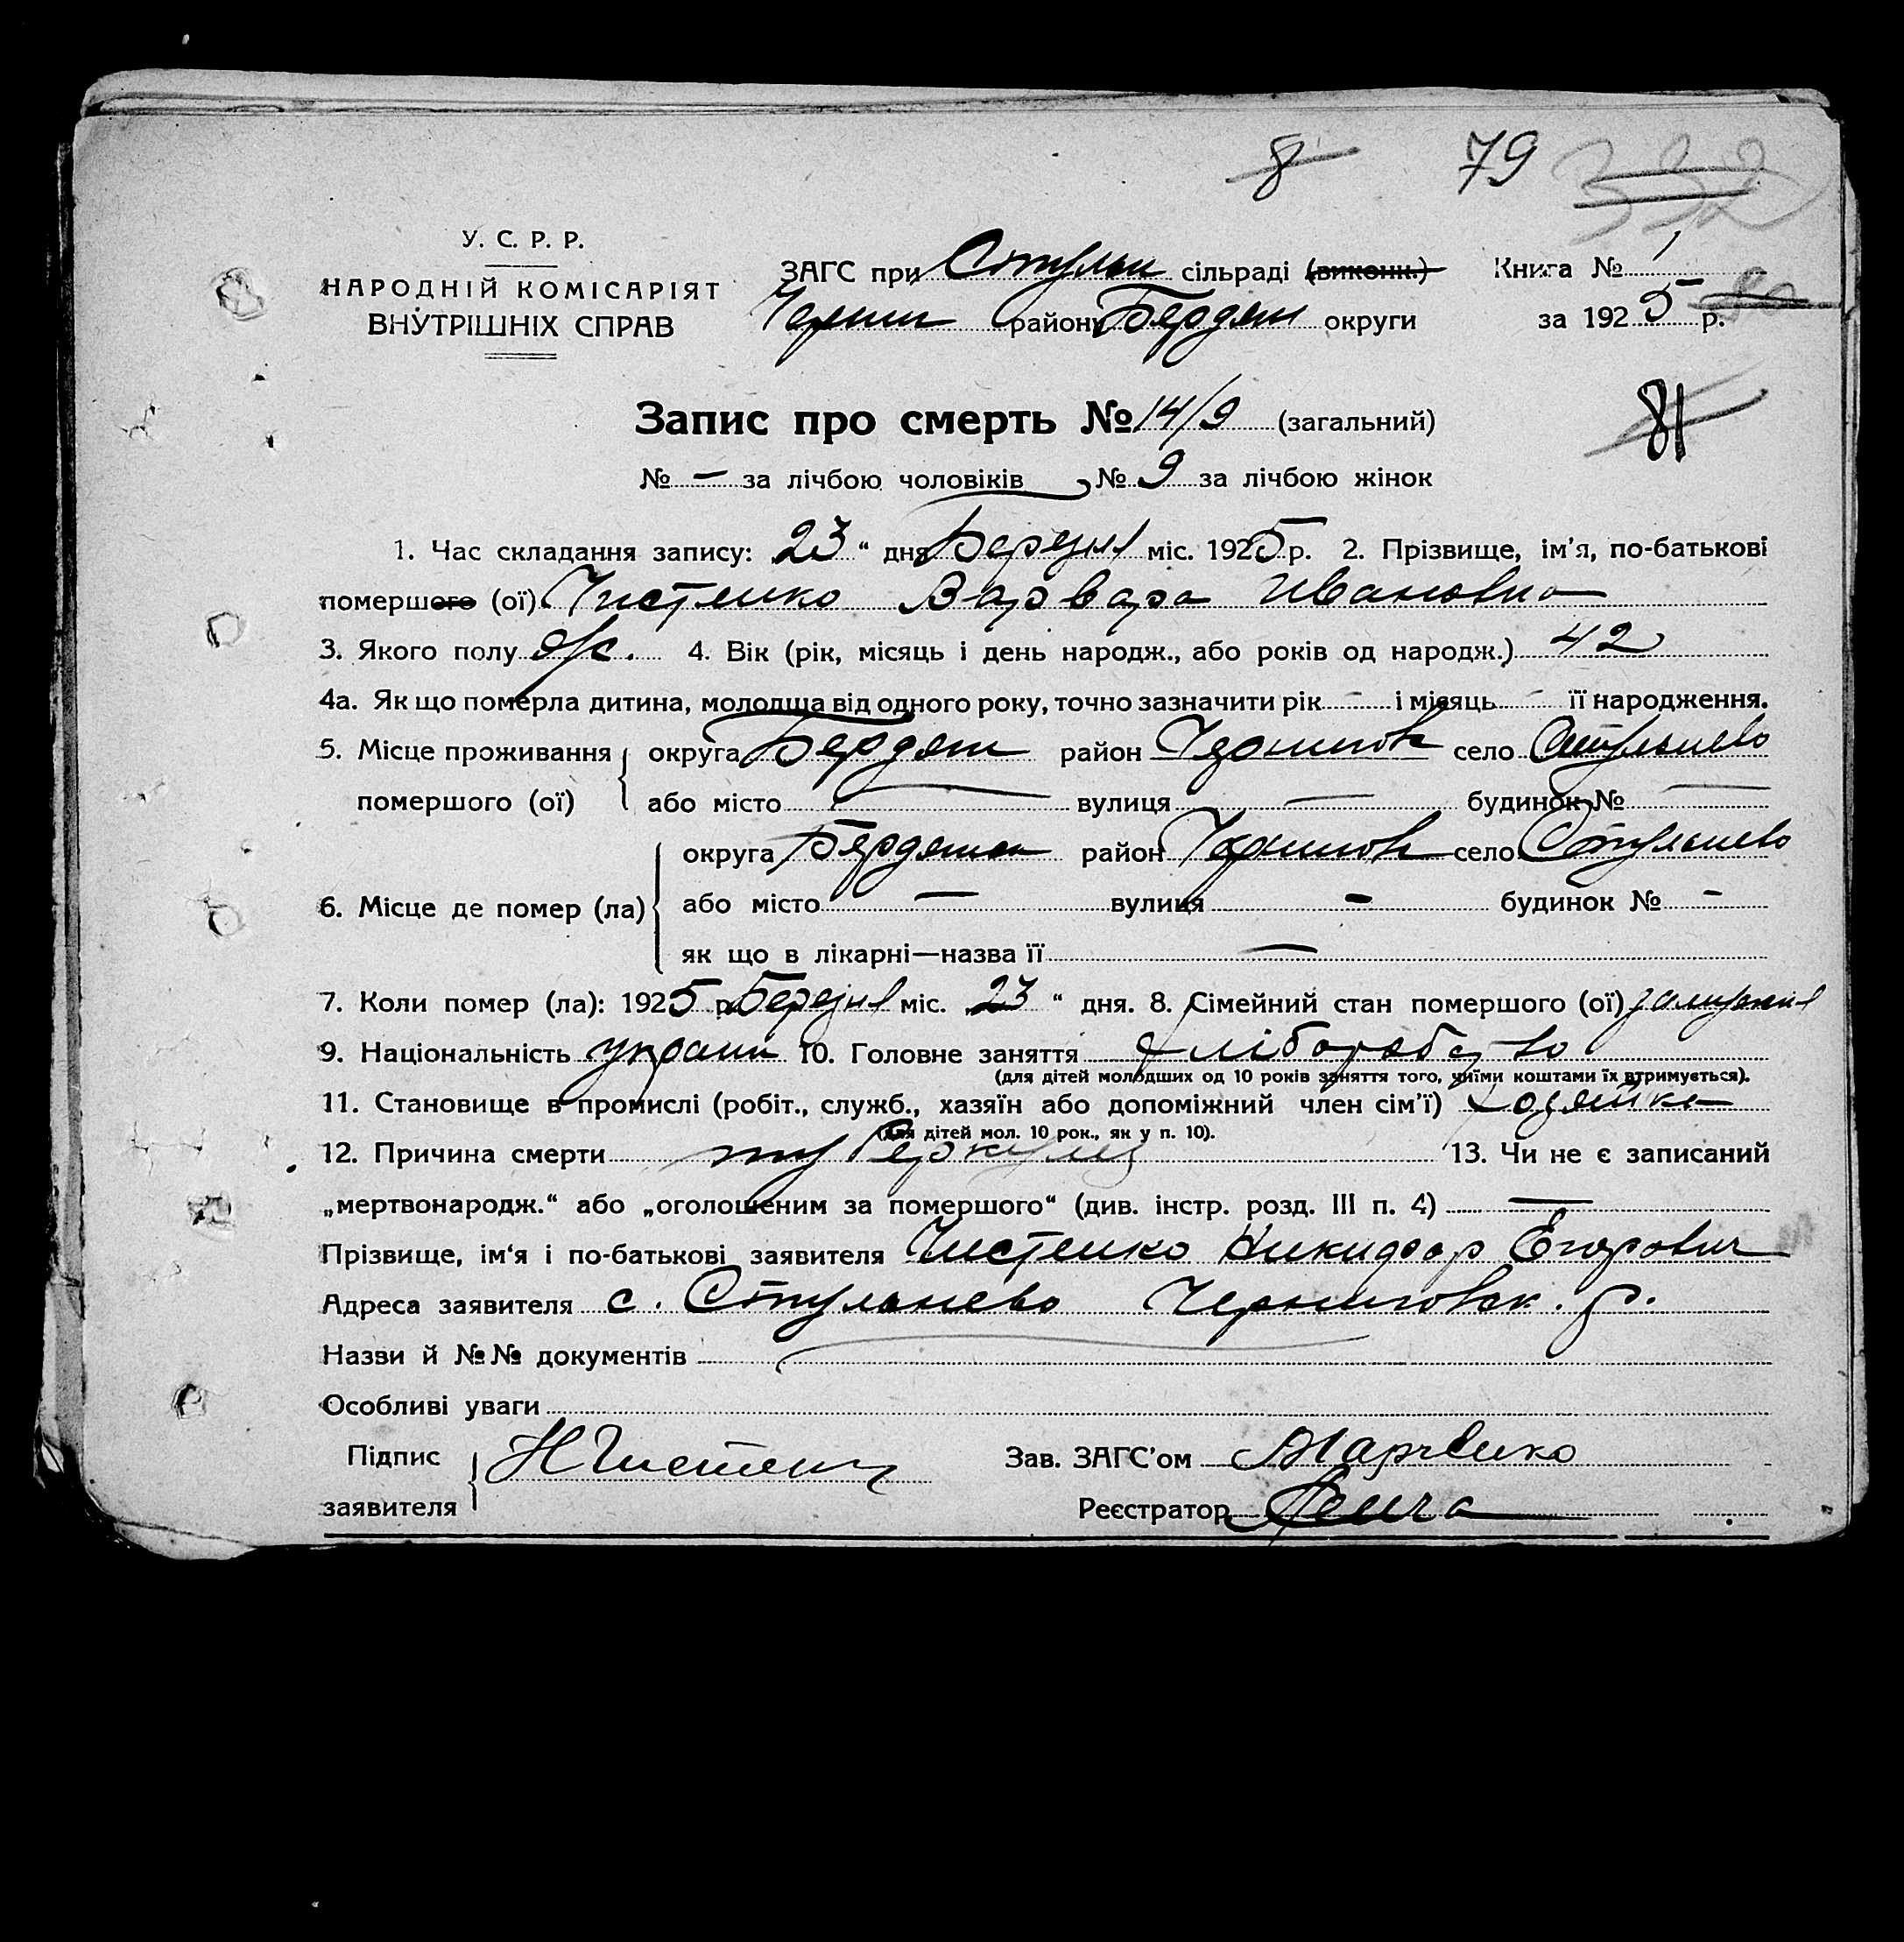 8 79 332
У. С. Р. Р.
НАРОДНІЙ КОМІСАРІЯТ
ВНУТРІШНІХ СПРАВ
ЗАГС при Стульн сільраді (виконк.) Книга № 1
Черниг району Бердян округи за 1925 р.
81
Запис про смерть № 14/9 (загальний)
№ — за лічбою чоловіків № 9 за лічбою жінок
1. Час складання запису: 23 “ дня Березня міс. 1925 р. 2. Прізвище, ім’я, по-батькові
помершого (ої) Чистенко Варвара Ивановна
3. Якого полу ж. 4. Вік (рік, місяць і день народж., або років од народж.) 42
4а. Як що померла дитина, молодша від одного року, точно зазначити рік — і місяць — її народження.
5. Місце проживання округа Бердян район Чернигов село Стульнево
помершого (ої) або місто — вулиця — будинок № —
округа Бердянск район Чернигов село Стульнево
6. Місце де помер (ла) або місто — вулиця — будинок № —
як що в лікарні—назва її —
7. Коли помер (ла): 1925 р. Березня міс. 23 “ дня. 8. Сімейний стан помершого (ої) замужня
9. Національність украин 10. Головне заняття хліборобство
(для дітей молодших од 10 років заняття того, чиїми коштами їх втримується).
11. Становище в промислі (робіт., служб., хазяїн або допоміжний член сім’ї) хозяйка
(для дітей мол. 10 рок., як у п. 10).
12. Причина смерти туберкулез 13. Чи не є записаний
„мертвонародж.“ або „оголошеним за помершого“ (див. інстр. розд. III п. 4) —
Прізвище, ім‘я і по-батькові заявителя Чистенко Никифор Егорович
Адреса заявителя с. Стульнево Черниговск. р.
Назви й №№ документів
Особливі уваги
Підпис Н Чистенко Зав. ЗАГС’ом Марченко
заявителя Реєстратор